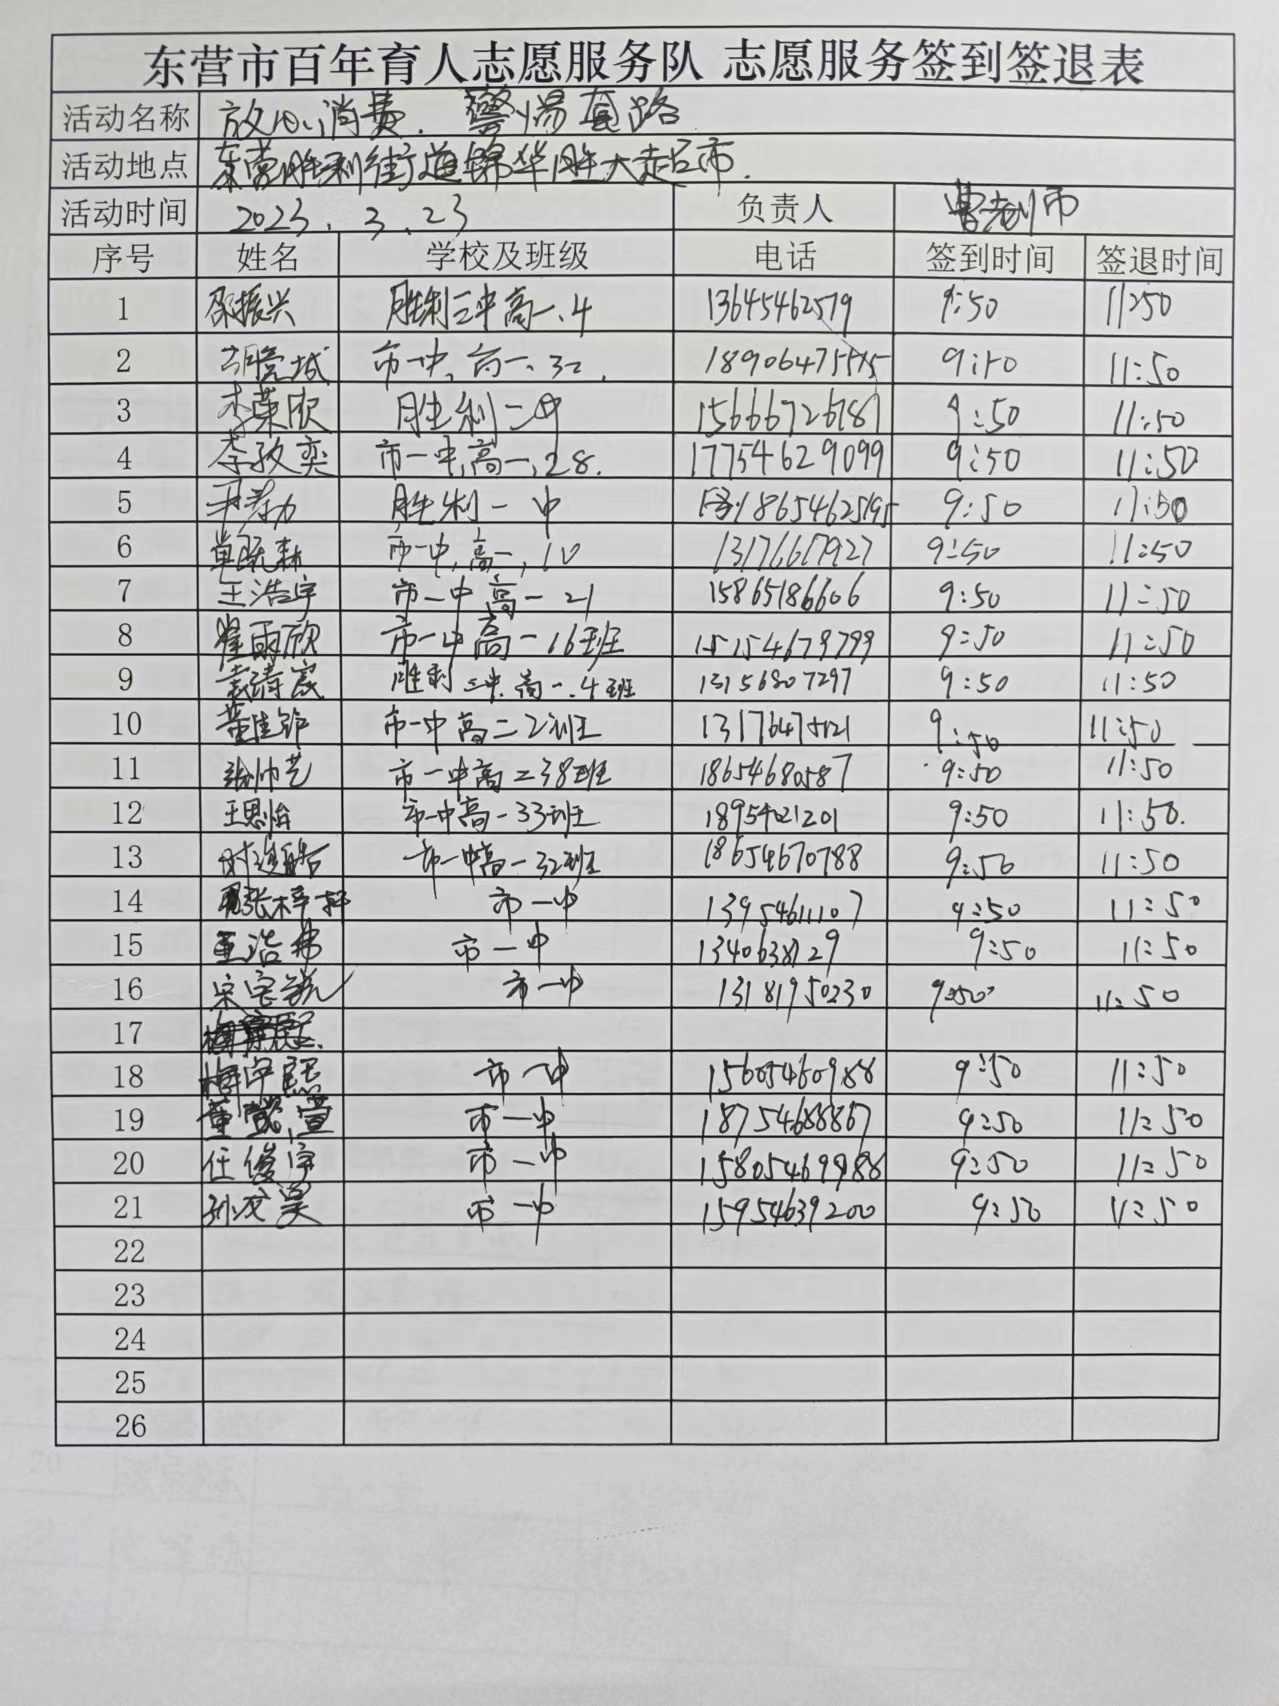 东营市百年育人志愿服务队 志愿服务签到签退表
活动名称 放心消费.警惕套路
活动地点 东营胜利街道锦华胜大超市.
活动时间 2023.3.23 负责人 曹老师
序号 姓名 学校及班级 电话 签到时间 签退时间
1 邵振兴 胜利二中高一.4 13645462519 9:50 11:50
2 市一中,高一.32. 9:50 11:50
3 李荣欣 胜利一中 15666726787 9:50 11:50
4 李孜奕 市一中,高一,28. 17754629099 9:50 11:50
5 胜利一中 18654625195 9:50 11:50
6 市一中,高一,10 9:50 11:50
7 王浩宇 市一中高一21 15865186606 9:50 11:50
8 崔雨欣 市一中高一16班 15154679799 9:50 11:50
9 胜利二中.高一.4班 13156807297 9:50 11:50
10 董佳 市一中高二2班 13176475121 9:50 11:50
11 市一中高二38班 18654680587 9:50 11:50
12 王恩怡 市一中高一33班 9:50 11:50.
13 市一中高一32班 18654670788 9:50 11:50
14 张梓轩 市一中 13954611107 9:50 11:50
15 王浩 市一中 9:50 11:50
16 宋 市一中 13181950230 9:50 11:50
17
18 梅 市一中 15605460988 9:50 11:50
19 董懿萱 市一中 18754688867 9:50 11:50
20 任俊宇 市一中 15805469988 9:50 11:50
21 孙文昊 市一中 15954639200 9:50 11:50
22
23
24
25
26